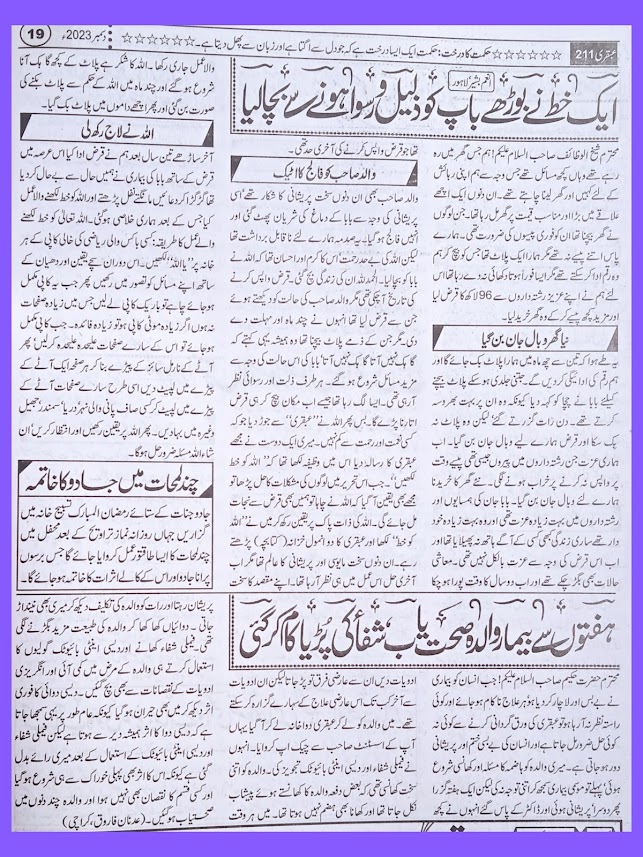 عبقری 211 ☆☆☆☆☆☆ حکمت کا درخت: حکمت ایک ایسا درخت ہے کہ جو دل سے اگتا ہے اور زبان سے پھل دیتا ہے۔ ☆☆☆☆☆☆ دسمبر 2023ء 19
ایک خط نے بوڑھے باپ کو ذلیل و رسوا ہونے سے بچالیا
محترم شیخ الوظائف صاحب السلام علیکم! ہم جس گھر میں رہ
رہے تھے وہاں کچھ مسائل تھے جس وجہ سے ہم اپنی رہائش
کے لئے کہیں اور گھر لینا چاہتے تھے۔ ان دنوں ایک اچھے
علاقے میں بڑا اور مناسب قیمت پر گھر مل رہا تھا۔ جن لوگوں
نے گھر بیچنا تھا ان کو فوری پیسوں کی ضرورت تھی۔ ہمارے
پاس اتنے پیسے نہ تھے مگر ہمارا ایک پلاٹ تھا جس کو بیچ کر ہم
وہ رقم ادا کر سکتے تھے مگر ایسا فوراً ہوتا دکھائی نہ دے رہا تھا اس
لئے ہم نے اپنے عزیز رشتہ داروں سے 96 لاکھ کا قرض لیا
اور مزید کچھ پیسے کر کے وہ گھر خرید لیا۔
نیا گھر وبال جان بن گیا
یہ طے ہوا کہ تین سے چھ ماہ میں ہمارا پلاٹ بک جائے گا اور
ہم رقم کی ادائیگی کر دیں گے۔ جتنی جلدی ہو سکے پلاٹ بیچنے
کیلئے بابا نے چچا کو کہہ دیا کیونکہ وہ ان پر بہت بھروسہ
کرتے تھے۔ دن رات گزرتے گئے لیکن وہ پلاٹ نہ
بک سکا اور قرض ہمارے لیے وبال جان بن گیا۔ اب
ہماری عزت جن رشتہ داروں میں پیروں جیسی تھی، پیسے وقت
پر واپس نہ کرنے پر خراب ہونے لگی، نئے گھر کا خریدنا
ہمارے لئے وبال جان بن گیا۔ بابا جان کی ہمسایوں اور
رشتہ داروں میں بہت زیادہ عزت تھی اور وہ بہت زیادہ خود
دار تھے ساری زندگی بھی کسی کے آگے ہاتھ نہ پھیلایا تھا اور
اب اس قرض کی وجہ سے عزت بالکل نہیں تھی۔ معاشی
حالات بھی بگڑ چکے تھے اور اب دو سال کا وقت پورا ہو چکا
نعیم بشیر، لاہور
تھا جو قرض واپس کرنے کی آخری حد تھی۔
والد صاحب کو فالج کا اٹیک
والد صاحب بھی ان دنوں سخت پریشانی کا شکار تھے، اسی
پریشانی کی وجہ سے بابا کے دماغ کی شریان پھٹ گئی اور
انہیں فالج ہو گیا۔ یہ صدمہ ہمارے لئے ناقابل برداشت تھا
لیکن اللہ کی بے حد رحمت، اس کا کرم اور احسان تھا کہ اللہ نے
بابا کو بچا لیا۔ الحمدللہ! ان دنوں کی گنتی، قرض واپس کرنے
کی تاریخ آچکی تھی مگر والد صاحب کی حالت کو دیکھتے ہوئے
جن سے قرض لیا تھا انہوں نے چند ماہ اور مہلت دے
دی۔ مگر جن کے ذمے پلاٹ بیچنا تھا وہ ہمیشہ یہی کہتے کہ
گاہک نہیں آتا گاہک نہیں آتا، بابا کی اس حالت کی وجہ سے
مزید مسائل شروع ہو گئے۔ ہر طرف ذلت اور رسوائی نظر
آرہی تھی۔ ایسا لگ رہا تھا جیسے اب مکان بیچ کر ہی قرض
اتارنا پڑے گا۔ بس پھر اللہ نے ”عبقری“ سے جوڑ دیا جو کہ
کسی نعمت اور رحمت سے کم نہیں۔ میری ایک دوست نے مجھے
عبقری کا رسالہ دیا اس میں وظیفہ لکھا تھا کہ ”اللہ کو خط
لکھیں“۔ جب اس تحریر میں لوگوں کی مشکلات کا حل پڑھا تو
مجھے بھی یقین آگیا کہ اللہ نے چاہا تو ہمیں بھی قرض سے نجات
مل جائے گی۔ اللہ کی ذات پاک پر یقین رکھ کر میں نے ”اللہ
کو خط“ لکھا اور عبقری کا دو انمول خزانہ (کتابچہ) پڑھتے
رہے۔ ان دنوں سخت مایوسی اور پریشانی کا عالم تھا مگر اب
آخری حل اس عمل میں ہی نظر آ رہا تھا۔ اپنے مقصد کا سخت
والا عمل جاری رکھا۔ اللہ کا شکر ہے پلاٹ کے کچھ گاہک آنا
شروع ہو گئے اور چند ماہ میں اللہ کے حکم سے پلاٹ بکنے کی
صورت بن گئی اور پھر اچھے داموں میں پلاٹ بک گیا۔
اللہ نے لاج رکھ لی
آخر ساڑھے تین سال بعد ہم نے قرض ادا کیا اس عرصہ میں
قرض کے ساتھ بابا کی بیماری نے ہمیں حال سے بے حال کر دیا
تھا گڑگڑا کر دعائیں مانگتے، نفل پڑھتے اور اللہ کو خط لکھنے والا عمل
کیا جس کے بعد ہماری خلاصی ہوئی۔ اللہ تعالیٰ کو خط لکھنے
والے عمل کا طریقہ: کسی باکس والی ریاضی کی خالی کاپی کے ہر
خانہ پر ”یا اللہ“ لکھیں۔ اس دوران سچے یقین اور دھیان کے
ساتھ اپنے مسائل کو تصور میں رکھیں پھر جب یہ کاپی مکمل
ہو جائے چاہے تو باریک کاپی لے لیں جس میں زیادہ صفحات
نہ ہوں اگر زیادہ موٹی کاپی ہو تو زیادہ فائدہ۔ جب کاپی مکمل
ہو جائے تو اس کے سارے صفحات علیحدہ علیحدہ کر لیں پھر
آٹے کے نارمل سائز کے پیڑے بنا کر ہر صفحہ ایک آٹے کے
پیڑے میں لپیٹ دیں اسی طرح سارے صفحات آٹے کے
پیڑے میں لپیٹ کر کسی صاف پانی والی نہر، دریا، سمندر، جھیل
وغیرہ میں بہا دیں۔ پھر اللہ پر یقین رکھیں اور انتظار کریں! ان
شاء اللہ مسئلہ ضرور حل ہو گا۔
چند لمحات میں جادو کا خاتمہ
جادو جنات کے ستائے رمضان المبارک تسبیح خانہ میں
گزاریں جہاں روزانہ نماز تراویح کے بعد محفل میں
چند لمحات کا ایسا طاقتور عمل کروایا جائے گا جس سے برسوں
پرانا جادو اور اس کے کالے اثرات کا خاتمہ ہو جائے گا۔
ہفتوں سے بیمار والدہ صحت یاب، شفاء کی پڑیا کام کر گئی
محترم حضرت حکیم صاحب السلام علیکم! جب انسان کو بیماری
نے بے بس اور لاچار کر دیا ہو، ہر علاج ناکام ہو جائے اور کوئی
راستہ نظر نہ آ رہا ہو تو عبقری کی ورق گردانی کرنے سے کوئی نہ
کوئی حل ضرور مل جاتا ہے اور انسان کی بے بسی ختم اور پریشانی
دور ہو جاتی ہے۔ میری والدہ کو ہاضمہ کا مسئلہ اور کھانسی شروع
ہوئی، پہلے تو موسمی بیماری سمجھ کر اتنی توجہ نہ کی لیکن ایک ہفتہ گزرا
پھر دوسرا، پریشانی ہوئی اور ڈاکٹر کے پاس گئے انہوں نے کچھ
ادویات دیں ان سے عارضی فرق تو پڑ جاتا لیکن ان ادویات
سے آخر کب تک اس عارضی علاج کے سہارے گزارہ کر سکتے
تھے۔ میں والدہ کو لے کر عبقری دواخانہ لے کر آ گیا یہاں
آپ کے اسسٹنٹ صاحب سے چیک اپ کروایا۔ انہوں
نے فیملی شفاء اور دیسی اینٹی بائیوٹک تجویز کی۔ والدہ کو اتنی
سخت کھانسی تھی کہ بعض دفعہ والدہ کا کھانستے ہوئے پیشاب
نکل جاتا تھا اور کھانا بھی ہضم نہیں ہوتا تھا۔ میں ہر وقت
پریشان رہتا اور رات کو والدہ کی تکلیف دیکھ کر میری بھی نیند اڑ
جاتی۔ دوائیاں کھا کھا کر والدہ کی طبیعت مزید بگڑنے لگی
تھی۔ فیملی شفائے کھانے اور دیسی اینٹی بائیوٹک گولیوں کا
استعمال کرتے ہی والدہ کے مرض میں کمی آئی اور انگریزی
ادویات کے نقصانات سے بھی بچ گئیں۔ دیسی دوائی کا فوری
اثر دیکھ کر میں بھی حیران ہو گیا کیونکہ عام طور پر یہی سمجھا جاتا
ہے کہ دیسی دوا کا اثر ہمیشہ دیر سے ہوتا ہے لیکن فیملی شفاء
اور دیسی اینٹی بائیوٹک کے استعمال کے بعد میری رائے بدل
گئی ہے کیونکہ اس کا اثر بھی پہلی خوراک سے ہی شروع ہو گیا
اور کسی قسم کا نقصان بھی نہیں ہوا اور والدہ چند دنوں میں
صحت یاب ہو گئیں۔ (عدنان فاروق، کراچی)